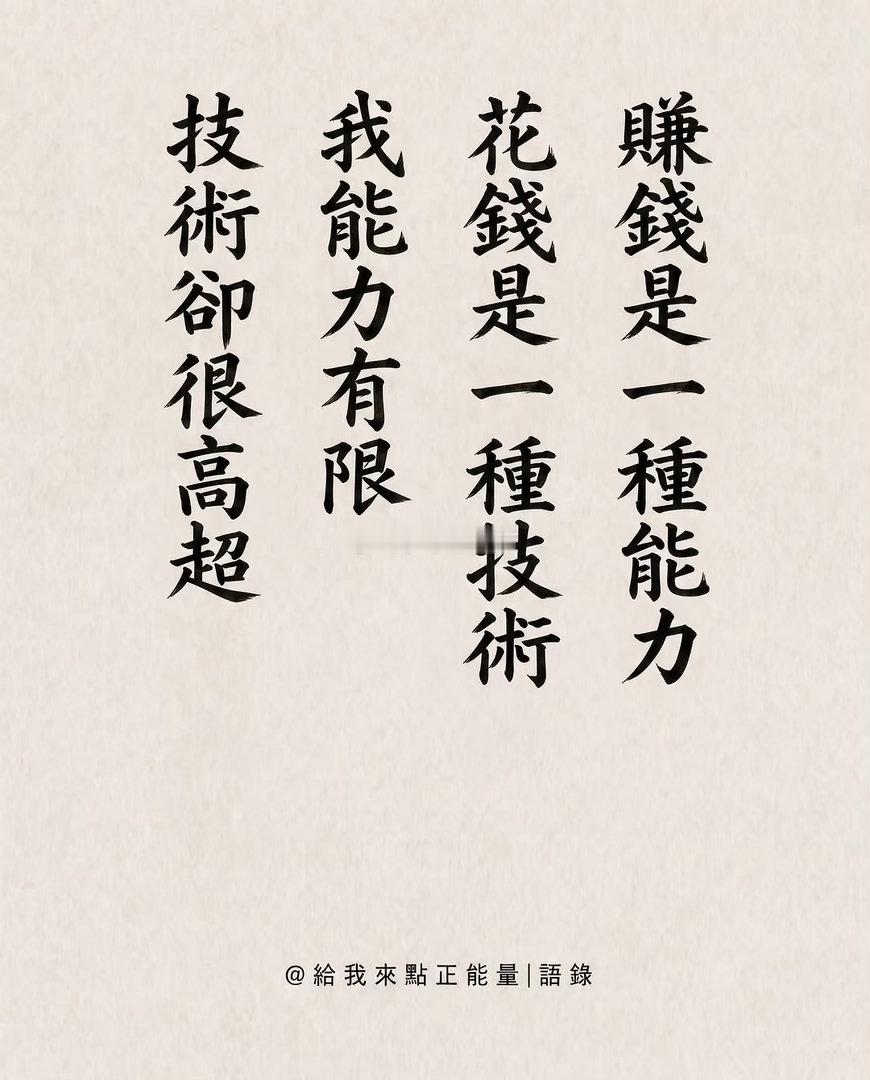 賺錢是一種能力
花錢是一種技術
我能力有限
技術卻很高超
@給我來點正能量|語錄